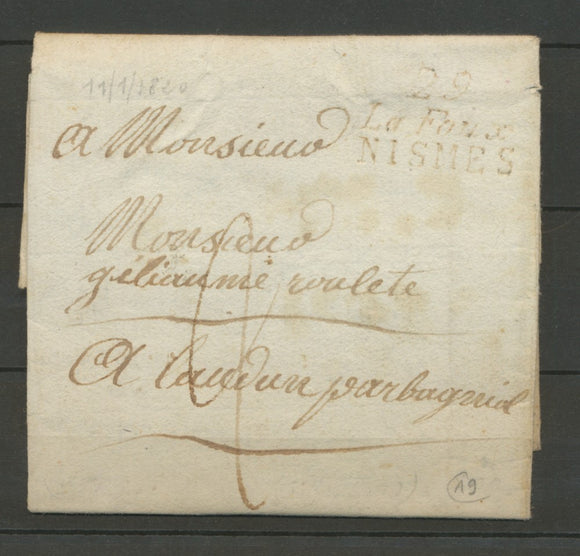 11/1/1820
29
La Faux
NISMES
A Monsieur
Monsieur
geliaume roulete
A laudun par bagniol
19